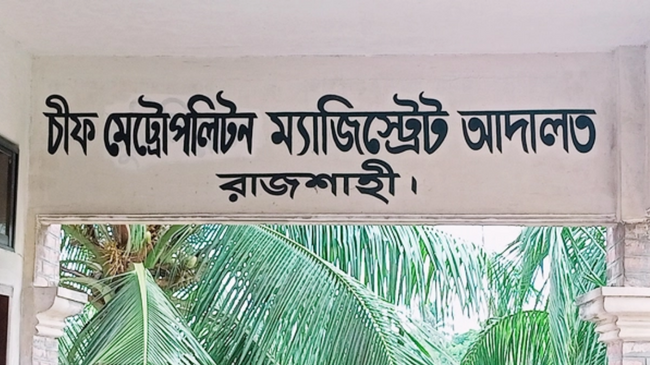 চীফ মেট্রোপলিটন ম্যাজিস্ট্রেট আদালত
রাজশাহী।